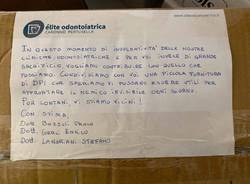 élite odontoiatrica
CARONNO PERTUSELLA
IN QUESTO MOMENTO DI INOPERATIVITÀ DELLE NOSTRE
CLINICHE ODONTOIATRICHE E PER VOI INVECE DI GRANDE
SACRIFICIO, VOGLIAMO CONTRIBUIRE CON QUELLO CHE
POSSIAMO. CONDIVIDIAMO CON VOI UNA PICCOLA FORNITURA
DI DPI CHE SPERIAMO VI POSSANO ESSERE UTILI PER
AFFRONTARE IL NEMICO INVISIBILE OGNI GIORNO.
PUR LONTANI VI STIAMO VICINI!
CON STIMA,
DOTT. PAOLO
DOTT. ENRICO
DOTT. STEFANO